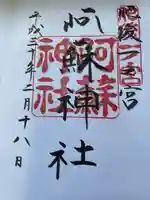 肥後一之宮
阿蘇神社
阿蘇
神社
平成三十年二月十八日